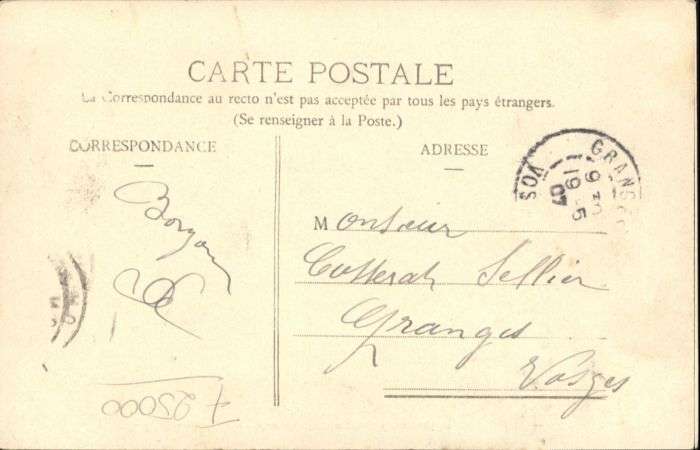 CARTE POSTALE
La Correspondance au recto n'est pas acceptée par tous les pays étrangers.
(Se renseigner à la Poste.)
CORRESPONDANCE
ADRESSE
GRANGES
VOS
9
19 5
07
Monsieur
Sellier
Granges
Vosges
F 25000